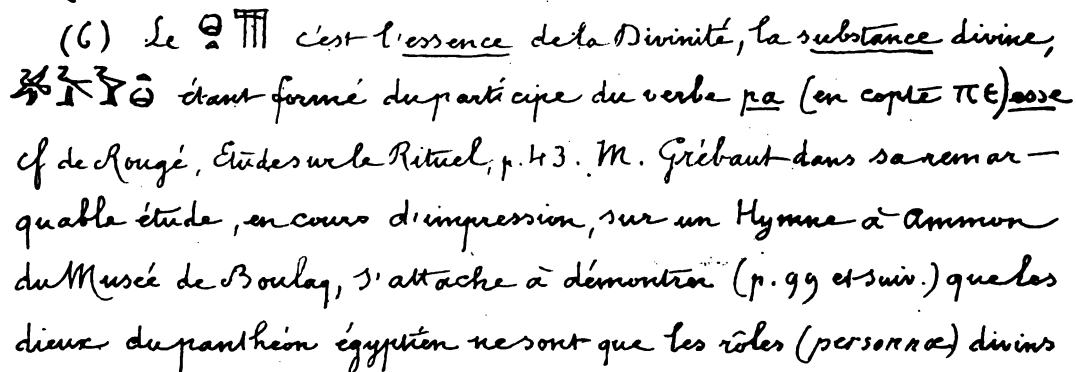 (6) Le c'est l'essence de la Divinité, la substance divine,
étant formé du participe du verbe pa (en copte πⲉ) esse
cf de Rougé, Etudes sur le Rituel, p. 43. M. Grébaut dans sa remar—
quable étude, en cours d'impression, sur un Hymne à Ammon
du Musée de Boulaq, s'attache à démontrer (p. 99 et suiv.) que les
dieux du panthéon égyptien ne sont que les rôles (personnæ) divins